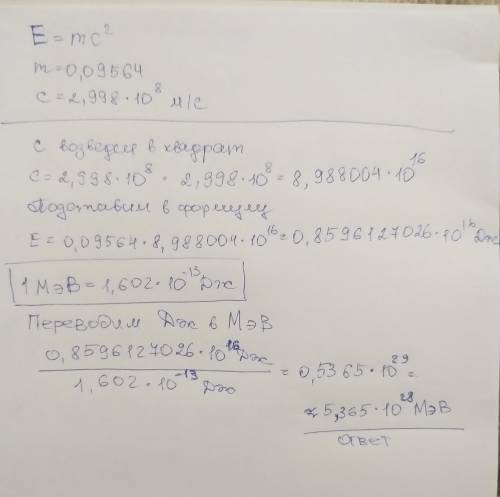 E = mc²
m = 0,09564
c = 2,998 · 10⁸ м/с
с возведем в квадрат
C = 2,998 · 10⁸ · 2,998 · 10⁸ = 8,988004 · 10¹⁶
Подставим в формулу
E = 0,09564 · 8,988004 · 10¹⁶ = 0,8596127026 · 10¹⁶ Дж
1 МэВ = 1,602 · 10⁻¹³ Дж
Переводим Дж в МэВ
0,8596127026 · 10¹⁶ Дж
1,602 · 10⁻¹³ Дж
= 0,5365 · 10²⁹ =
≈ 5,365 · 10²⁸ МэВ
ответ